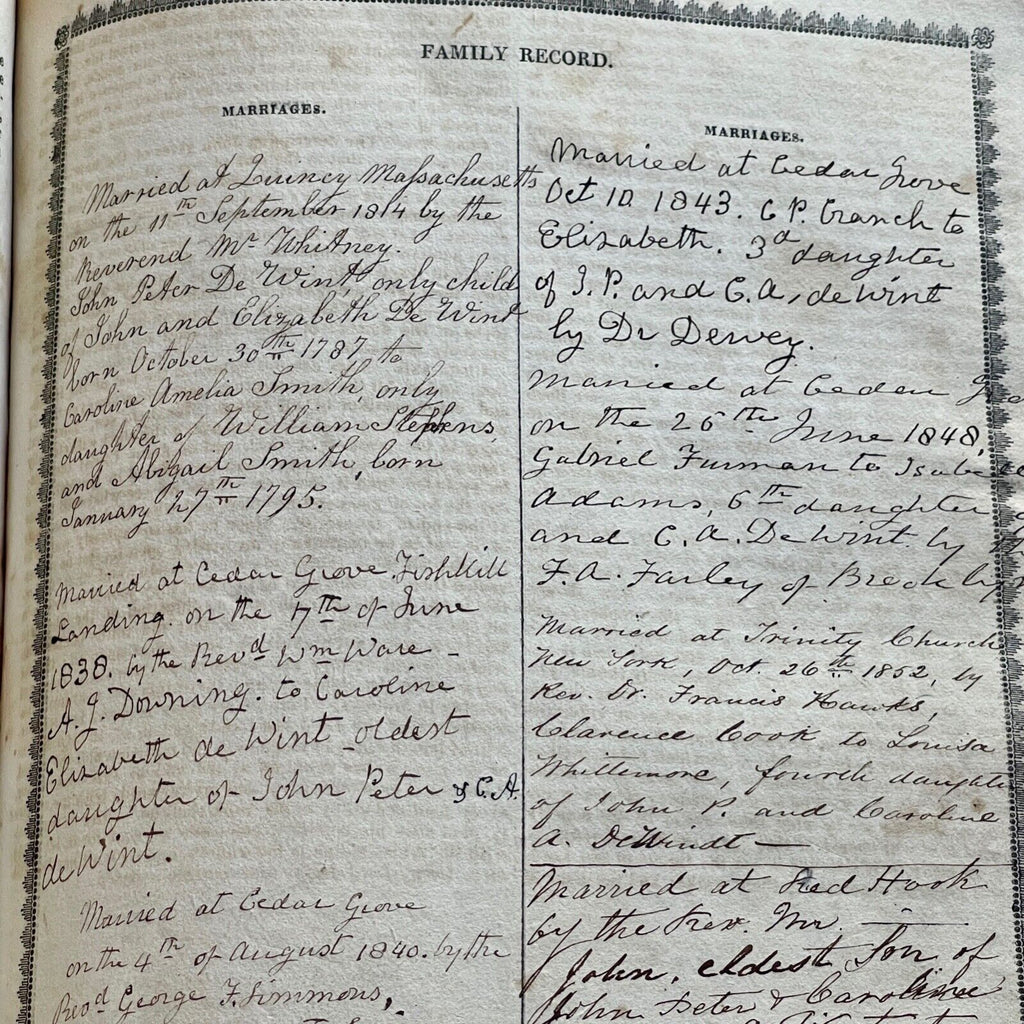 FAMILY RECORD.
MARRIAGES.
Married at Quincy Massachusetts
on the 11th September 1814 by the
Reverend Mr Whitney.
John Peter De Wint, only child
of John and Elizabeth De Wint
born October 30th 1787, to
Caroline Amelia Smith, only
daughter of William Stephens,
and Abigail Smith, born
January 27th 1795.
Married at Cedar Grove Fishkill
Landing. on the 7th of June
1838. by the Revd Wm Ware –
A. J. Downing. to Caroline
Elizabeth de Wint oldest
daughter of John Peter & C. A.
de Wint.
Married at Cedar Grove
on the 4th of August 1840. by the
Revd George F. Simmons,
MARRIAGES.
Married at Cedar Grove
Oct 10 1843. C P. Cranch to
Elizabeth. 3d daughter
of J. P. and C. A. de Wint
by Dr Dewey.
Married at Cedar
on the 26th June 1848,
Gabriel Furman to
Adams, 6th daughter
and C. A. De Wint by
F. A. Farley of Brooklyn
Married at Trinity Church
New York, Oct. 26th 1852, by
Rev. Dr. Francis Hawks,
Clarence Cook to Louisa
Whittemore, fourth daughter
of John P. and Caroline
A. DeWindt —
Married at Red Hook
by the Rev. Mr. —
John, eldest Son of
John Peter & Caroline